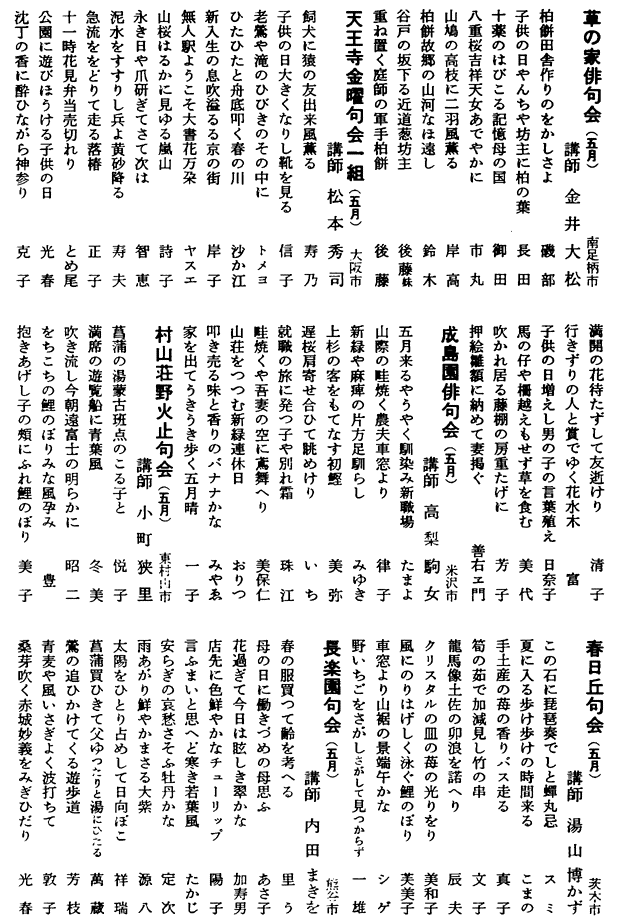 草の家俳句会（五月）
南足柄市
講師 金井大松
柏餅田舎作りのをかしさよ 磯部
子供の日やんちや坊主に柏の葉 長田
十薬のはびこる記憶母の国 御田
八重桜吉祥天女あでやかに 市丸
山鳩の高枝に二羽風薫る 岸高
柏餅故郷の山河なほ遠し 鈴木
谷戸の坂下る近道葱坊主 後藤妹
重ね置く庭師の軍手柏餅 後藤
天王寺金曜句会一組（五月）
大阪市
講師 松本秀司
飼犬に猿の友出来風薫る 寿乃
子供の日大きくなりし靴を見る 信子
老鶯や滝のひびきのその中に トメヨ
ひたひたと舟底叩く春の川 沙か江
新入生の息吹溢るる京の街 岸子
無人駅ようこそ大書花万朶 ヤスエ
山桜はるかに見ゆる嵐山 詩子
永き日や爪研ぎてさて次は 智恵
泥水をすすりし兵よ黄砂降る 寿夫
急流ををどりて走る落椿 正子
十一時花見弁当売切れり とめ尾
公園に遊びほうける子供の日 光春
沈丁の香に酔ひながら神参り 克子
満開の花待たずして友逝けり 清子
行きずりの人と賞でゆく花水木 富
子供の日増えし男の子の言葉殖え 日奈子
馬の仔や柵越えもせず草を食む 美代
吹かれ居る藤棚の房重たげに 芳子
押絵雛額に納めて妻掲ぐ 善右ヱ門
成島園俳句会（五月）
米沢市
講師 高梨駒女
五月来るやうやく馴染み新職場 たまよ
山際の畦焼く農夫車窓より 律子
新緑や麻痺の片方足馴らし みゆき
上杉の客をもてなす初鰹 美弥
遅桜肩寄せ合ひて眺めけり いち
就職の旅に発つ子や別れ霜 珠江
畦焼くや吾妻の空に鳶舞へり 美保仁
山荘をつつむ新緑連休日 おりつ
叩き売る味と香りのバナナかな みやゑ
家を出てうきうき歩く五月晴 一子
村山荘野火止句会（五月）
東村山市
講師 小町狭里
菖蒲の湯蒙古斑点のこる子と 悦子
満席の遊覧船に青葉風 冬美
吹き流し今朝遠富士の明らかに 昭二
をちこちの鯉のぼりみな風孕み 豊
抱きあげし子の頬にふれ鯉のぼり 美子
春日丘句会（五月）
茨木市
講師 湯山博かず
この石に琵琶奏でしと蟬丸忌 スミ
夏に入る歩け歩けの時間来る こまの
手土産の苺の香りバス走る 真子
筍の茹で加減見し竹の串 文子
龍馬像土佐の卯浪を諾へり 辰夫
クリスタルの皿の苺の光りをり 美和子
風にのりはげしく泳ぐ鯉のぼり 芙美子
車窓より山裾の景端午かな シゲ
野いちごをさがしさがして見つからず 一雄
長楽園句会（五月）
熊谷市
講師 内田まきを
春の服買つて齢を考へる 里う
母の日に働きづめの母思ふ あさ子
花過ぎて今日は眩しき翠かな 加寿男
店先に色鮮やかなチューリップ 陽子
言ふまいと思へど寒き若葉風 たかじ
安らぎの哀愁さそふ牡丹かな 定次
雨あがり鮮やかまさる大紫 源八
太陽をひとり占めして日向ぼこ 祥瑞
菖蒲買ひきて父ゆつたりと湯にひたる 萬蔵
鶯の追ひかけてくる遊歩道 芳枝
青麦や風いさぎよく波打ちて 敦子
桑芽吹く赤城妙義をみぎひだり 光春